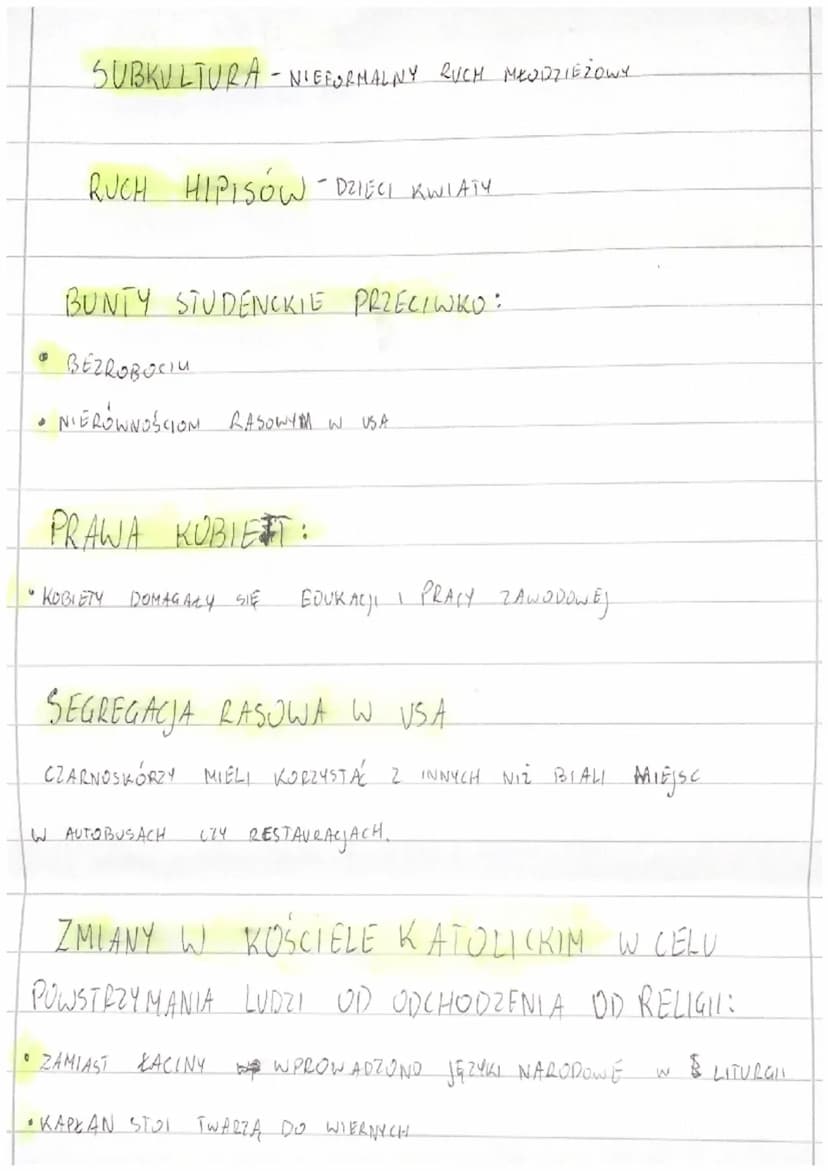 SUBKULTURA - NIEFORMALNY RUCH MŁODZIEŻOWY
RUCH HIPISÓW - DZIECI KWIATY
BUNTY STUDENCKIE PRZECIWKO:
• BEZROBOCIU
• NIERÓWNOŚCIOM RASOWYM W USA
PRAWA KOBIET:
• KOBIETY DOMAGAŁY SIĘ EDUKACJI I PRACY ZAWODOWEJ
SEGREGACJA RASOWA W USA
CZARNOSKÓRZY MIELI KORZYSTAĆ Z INNYCH NIŻ BIALI MIEJSC
W AUTOBUSACH CZY RESTAURACJACH.
ZMIANY W KOŚCIELE KATOLICKIM W CELU
POWSTRZYMANIA LUDZI OD ODCHODZENIA OD RELIGII:
• ZAMIAST ŁACINY WPROWADZONO JĘZYKI NARODOWE W LITURGII
• KAPŁAN STOI TWARZĄ DO WIERNYCH